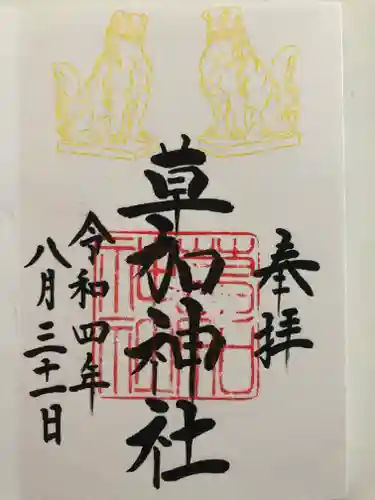 奉拝
草加神社
令和四年
八月三十一日